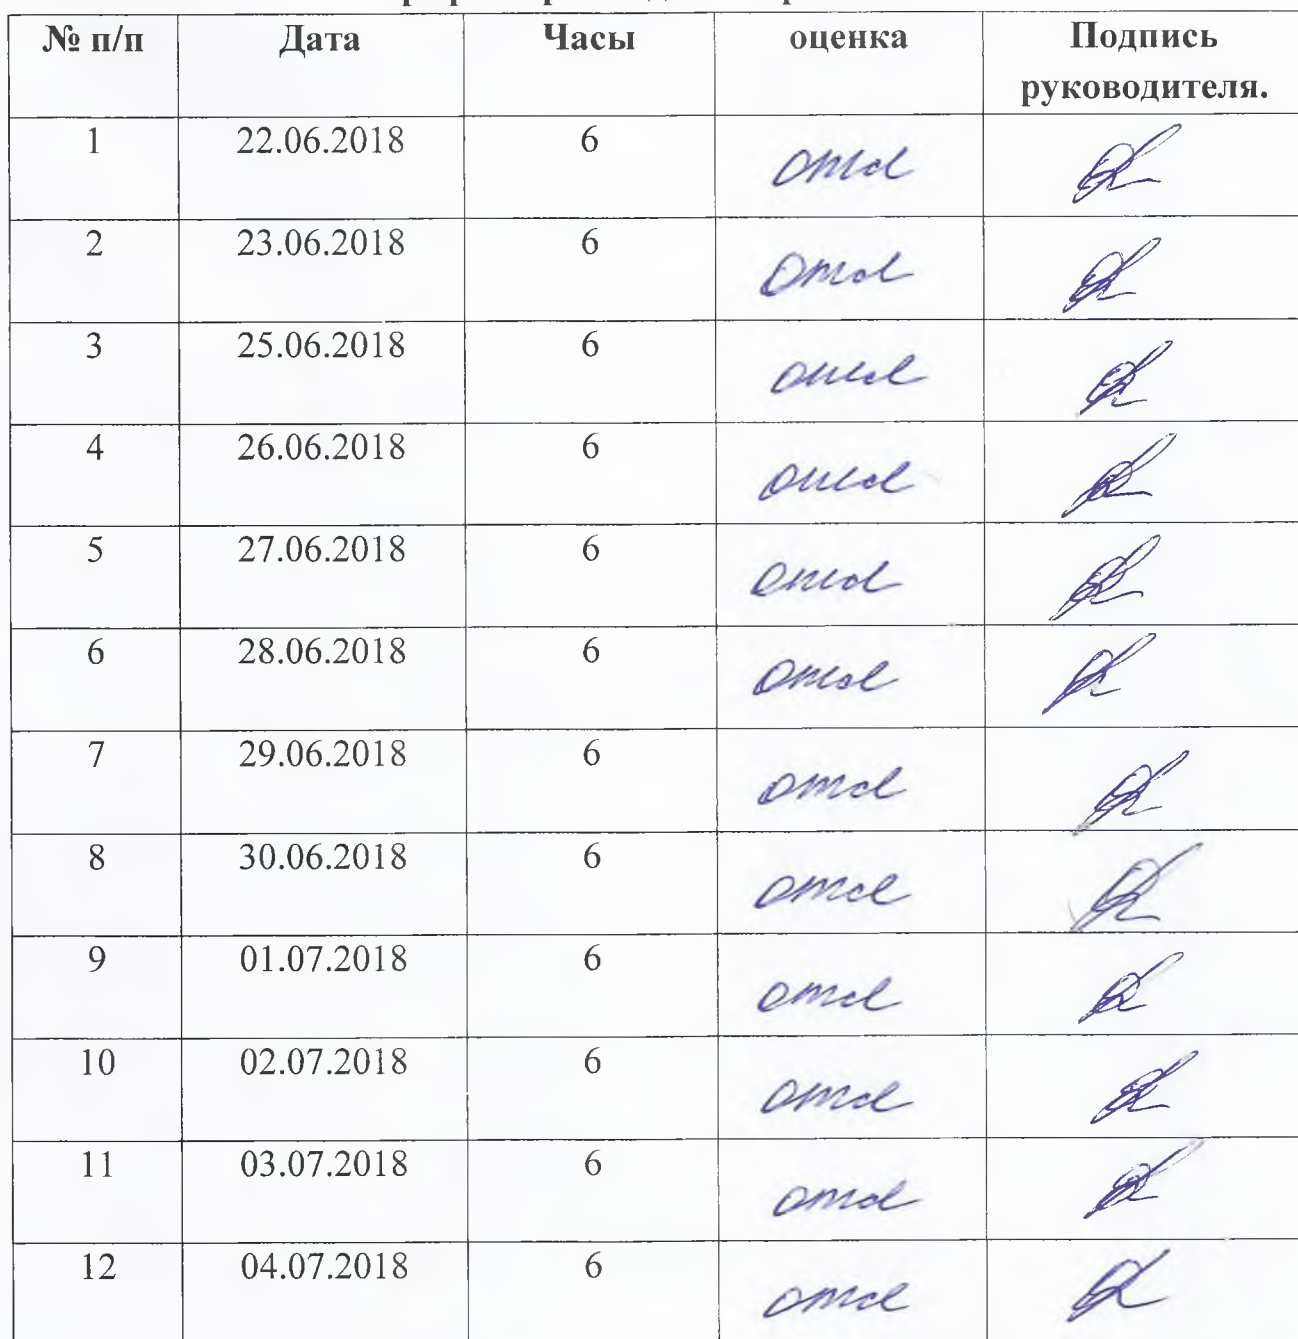 № п/п Дата Часы оценка Подпись
руководителя.
1 22.06.2018 6 отл
2 23.06.2018 6 отл
3 25.06.2018 6 отл
4 26.06.2018 6 отл
5 27.06.2018 6 отл
6 28.06.2018 6 отл
7 29.06.2018 6 отл
8 30.06.2018 6 отл
9 01.07.2018 6 отл
10 02.07.2018 6 отл
11 03.07.2018 6 отл
12 04.07.2018 6 отл